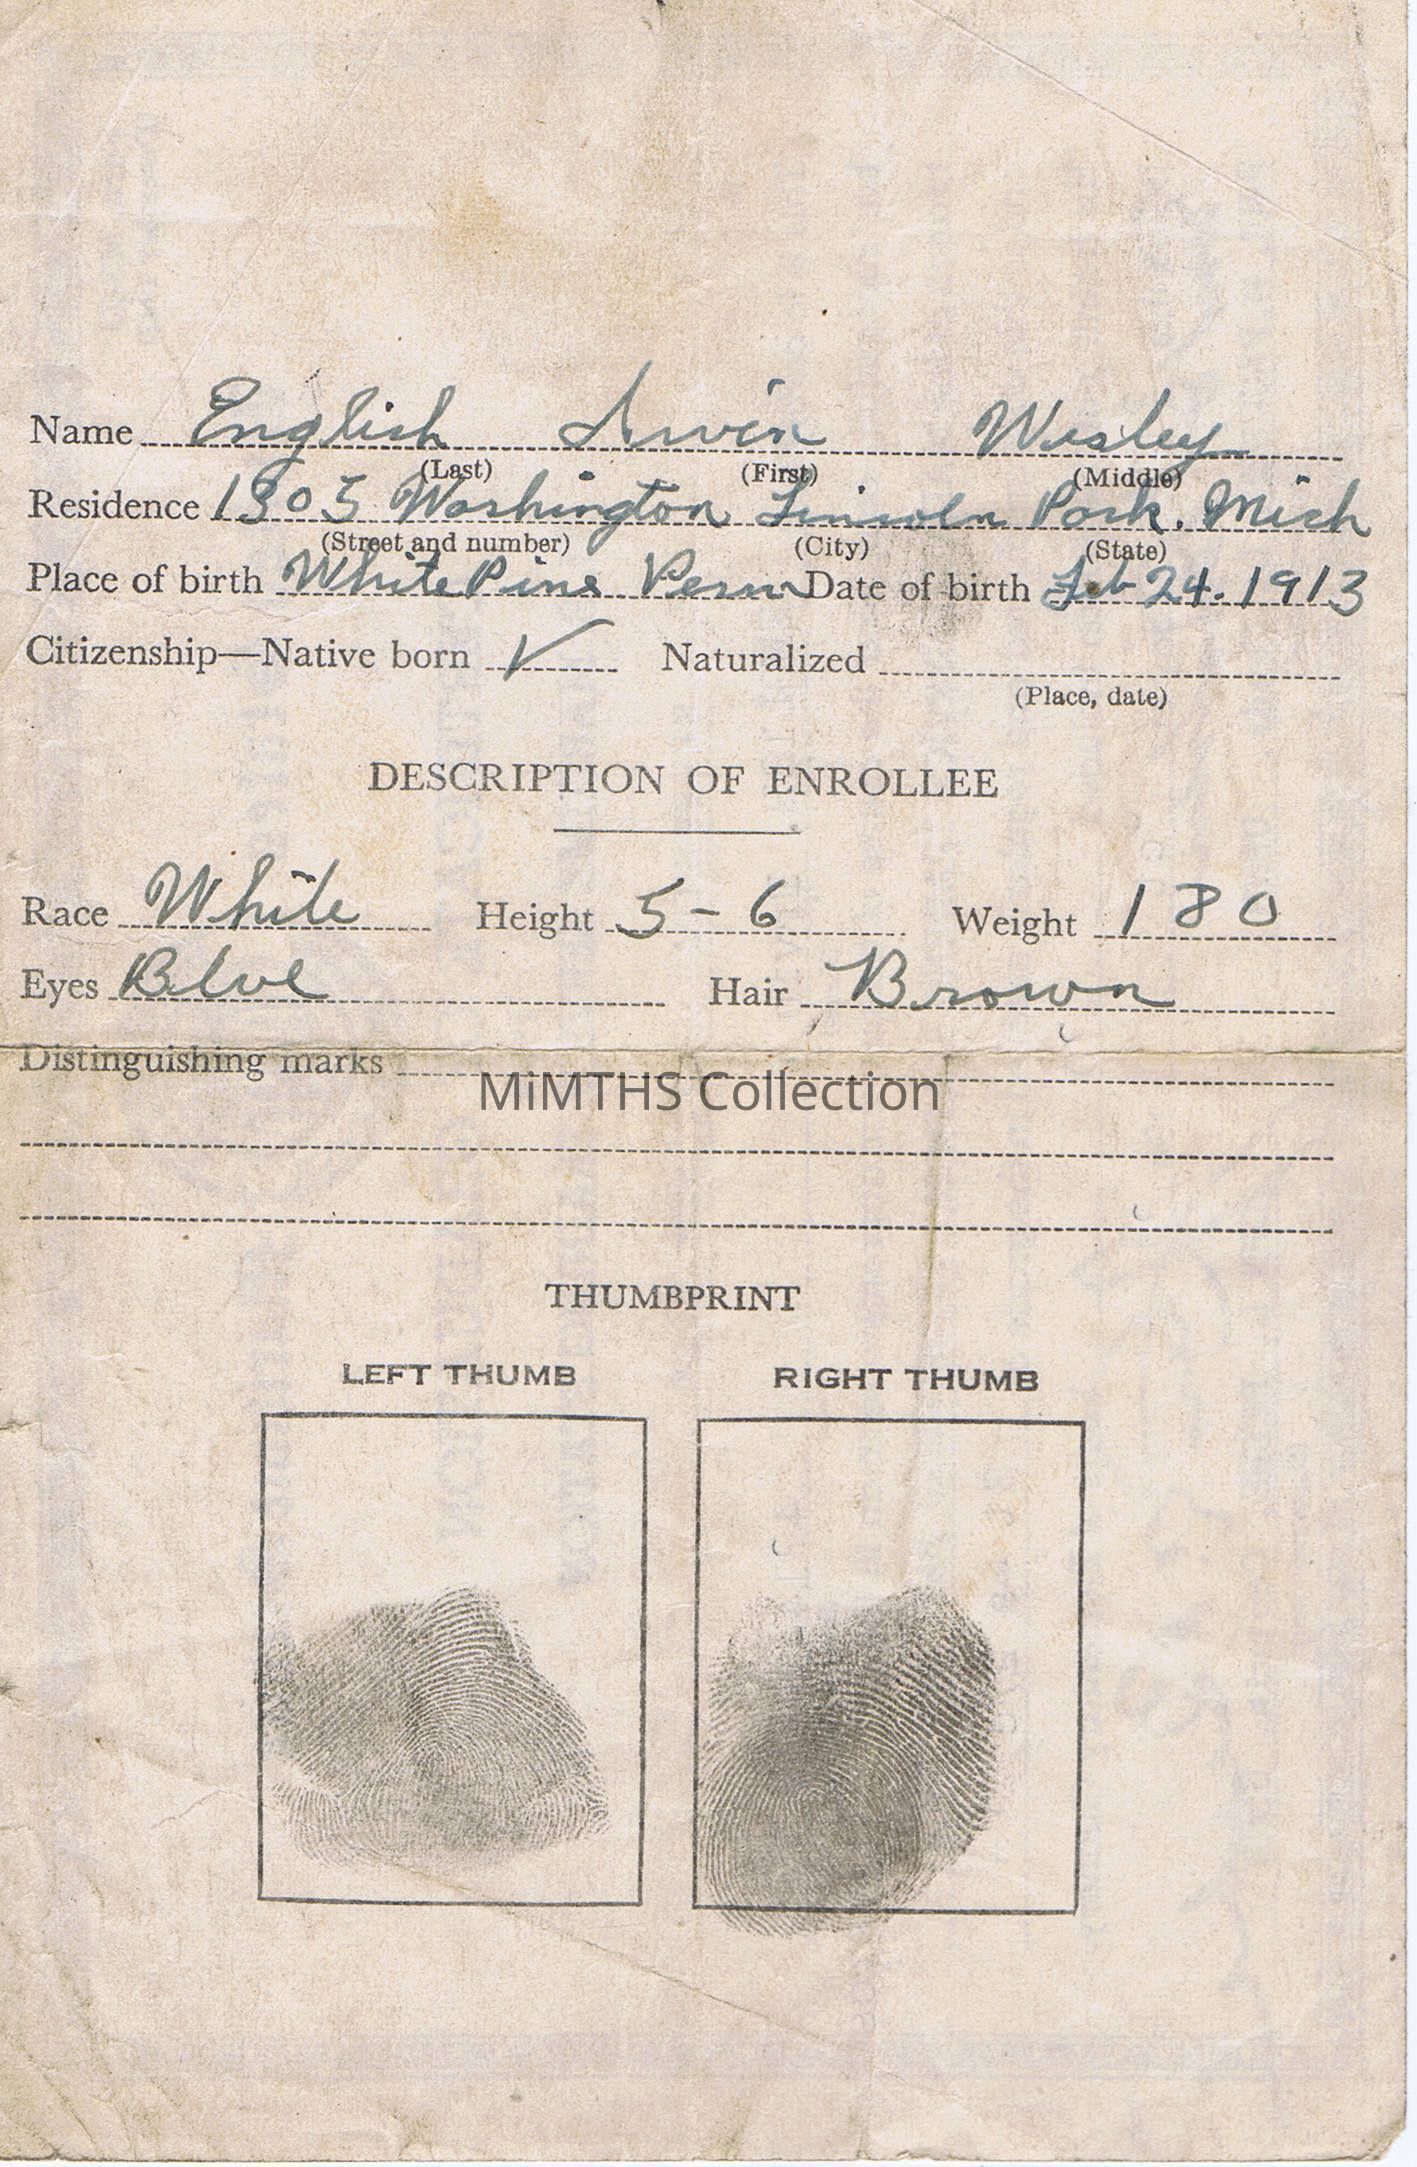 Name English Irvin Wesley
(Last) (First) (Middle)
Residence 1305 Washington Lincoln Park. Mich
(Street and number) (City) (State)
Place of birth White Pine Penn Date of birth Feb 24. 1913
Citizenship—Native born ✓ Naturalized
(Place, date)
DESCRIPTION OF ENROLLEE
Race White Height 5-6 Weight 180
Eyes Blue Hair Brown
Distinguishing marks
MiMTHS Collection
THUMBPRINT
LEFT THUMB RIGHT THUMB